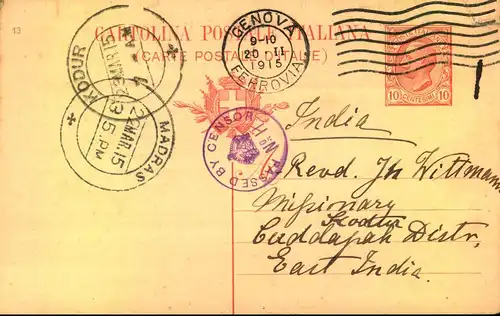 13
CARTOLINA POSTALE ITALIANA
(CARTE POSTALE D'ITALIE)
GENOVA
9-10
20 II
1915
FERROVIA
10 CENTESIMI 10
KODUR
MAR 15
MADRAS
22 MAR. 15
5. PM
PASSED BY CENSOR
India
Revd. Jh Wittmann
Missionary
Kodur
Cuddapah Distr,
East India.